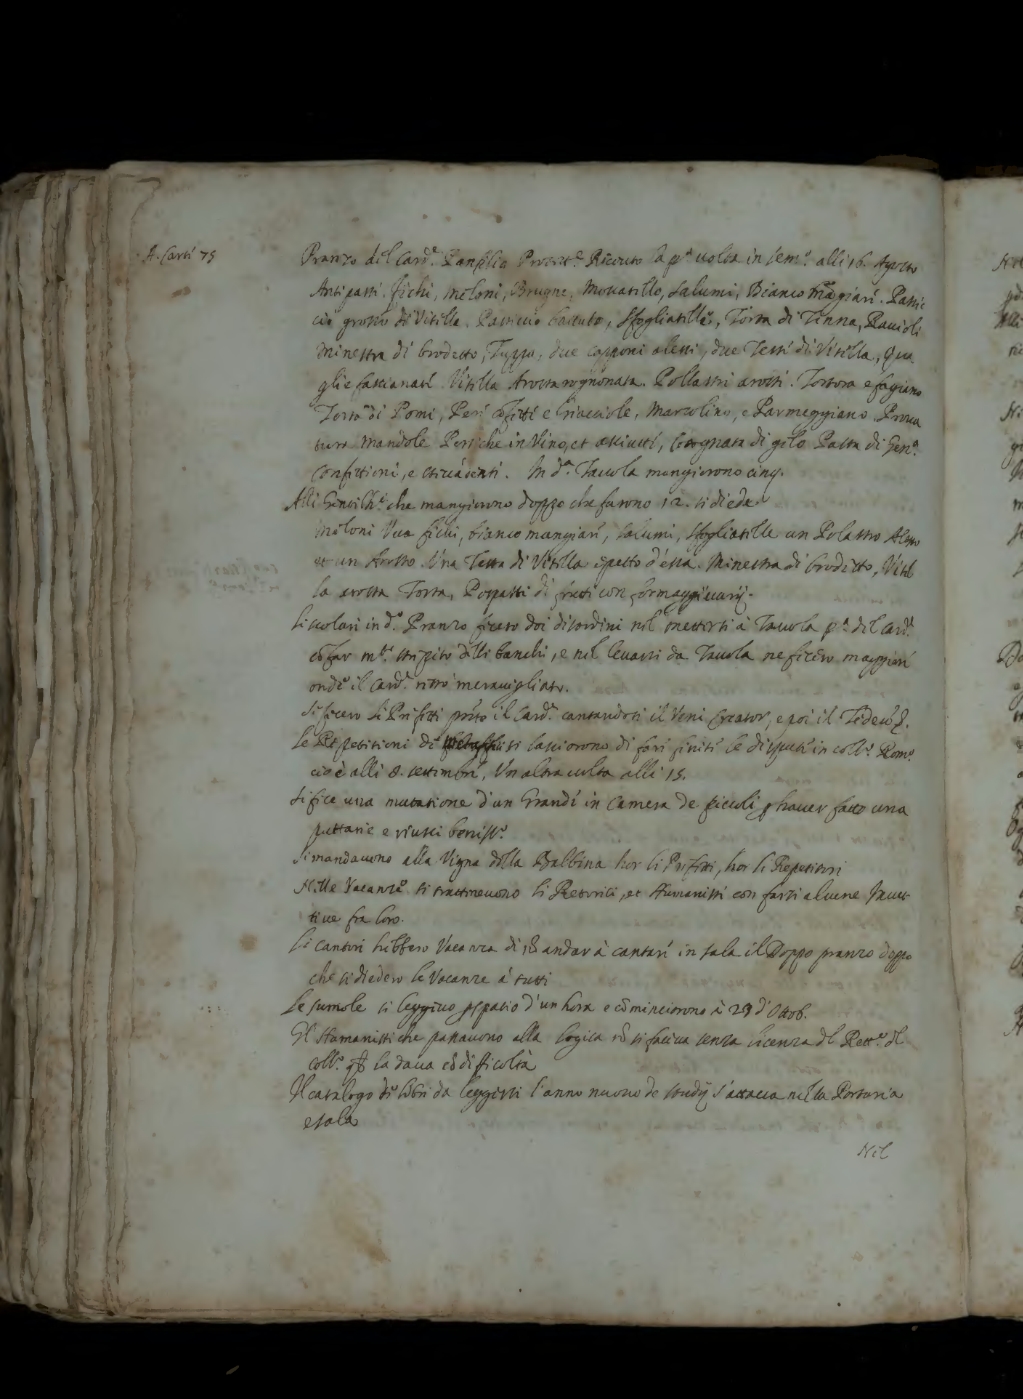 A Carte 75
Pranzo del Card.e Panfilio Protett.e Riceuto la p.a uolta in sem.o alli 16. Agosto
Antipasti. fichi, meloni, Brugne, moscatillo, salumi, Bianco mãgiari. Pastic
cio grosso di Vitella. Pasticcio battuto, sfogliatille, Torta di Tenna, Rauioli
minestra di brodetto, due capponi alessi, due Teste di Vitella, Qua
glie fassianati. Vitella Arrosta rognonata. Pollastri arosti. Tortora e fagiano
Torta di Pomi, Peri e Marzolino, e Parmeggiano Proua
ture mandole Persiche in Vino, et di gelo Pasta di Gen.a
Confettioni, e In d.a Tauola mangiorono cinq.
Alli Gentilh.i che mangiorono doppo che furono 12. si diede
meloni Vua fichi, bianco mangiari, salumi, sfogliatille un Polastro Alesso
et un Arosto. Una Testa di Vitella e petto d'essa. Minestra di brodetto, Vitel
la arosta Torta, Pospasti di frutti con
Li scolari in d.o Pranzo fecero doi disordini nel mettersi à Tauola p.a del Card.e
cõ far m.to strepito delli banchi, e nel leuarsi da Tauola ne fecero maggiori
onde il Card.e restò merauigliato.
Si fecero li Prefetti p̃nte il Card.e cantandosi il Veni Creator, e poi il
Le Repetitioni de lasciorono di fari finite le dispute in coll.o Rom.o
cioè alli 8. settembri, Un altra uolta alli 15.
Si fece una mutatione d'un Grandi in Camera de piccoli p hauer fatto una
e riuscì beniss.o
Si mandauono alla Vigna della Balbina hor li Prefetti, hor li Repetitori
Alle Vacanze si tratteneuono li Retorici, et Humanisti con farsi alcune
fra loro.
Li Cantori hebbero Vacanza di nõ andar à cantari in sala il Doppo pranzo doppo
che si diedero le Vacanze à tutti
Le sumole si leggiuo p spatio d'un hora e cõminciorono à 29 d'Ottob.
Gl'Humanisti che passauono alla logica nõ si faceua senza licenza del Rett.e del
coll.o la daua cõ dificoltà
Il catalogo de libri da leggersi l'anno nuouo de studij s'attacca nella Portaria
e sala
Nel